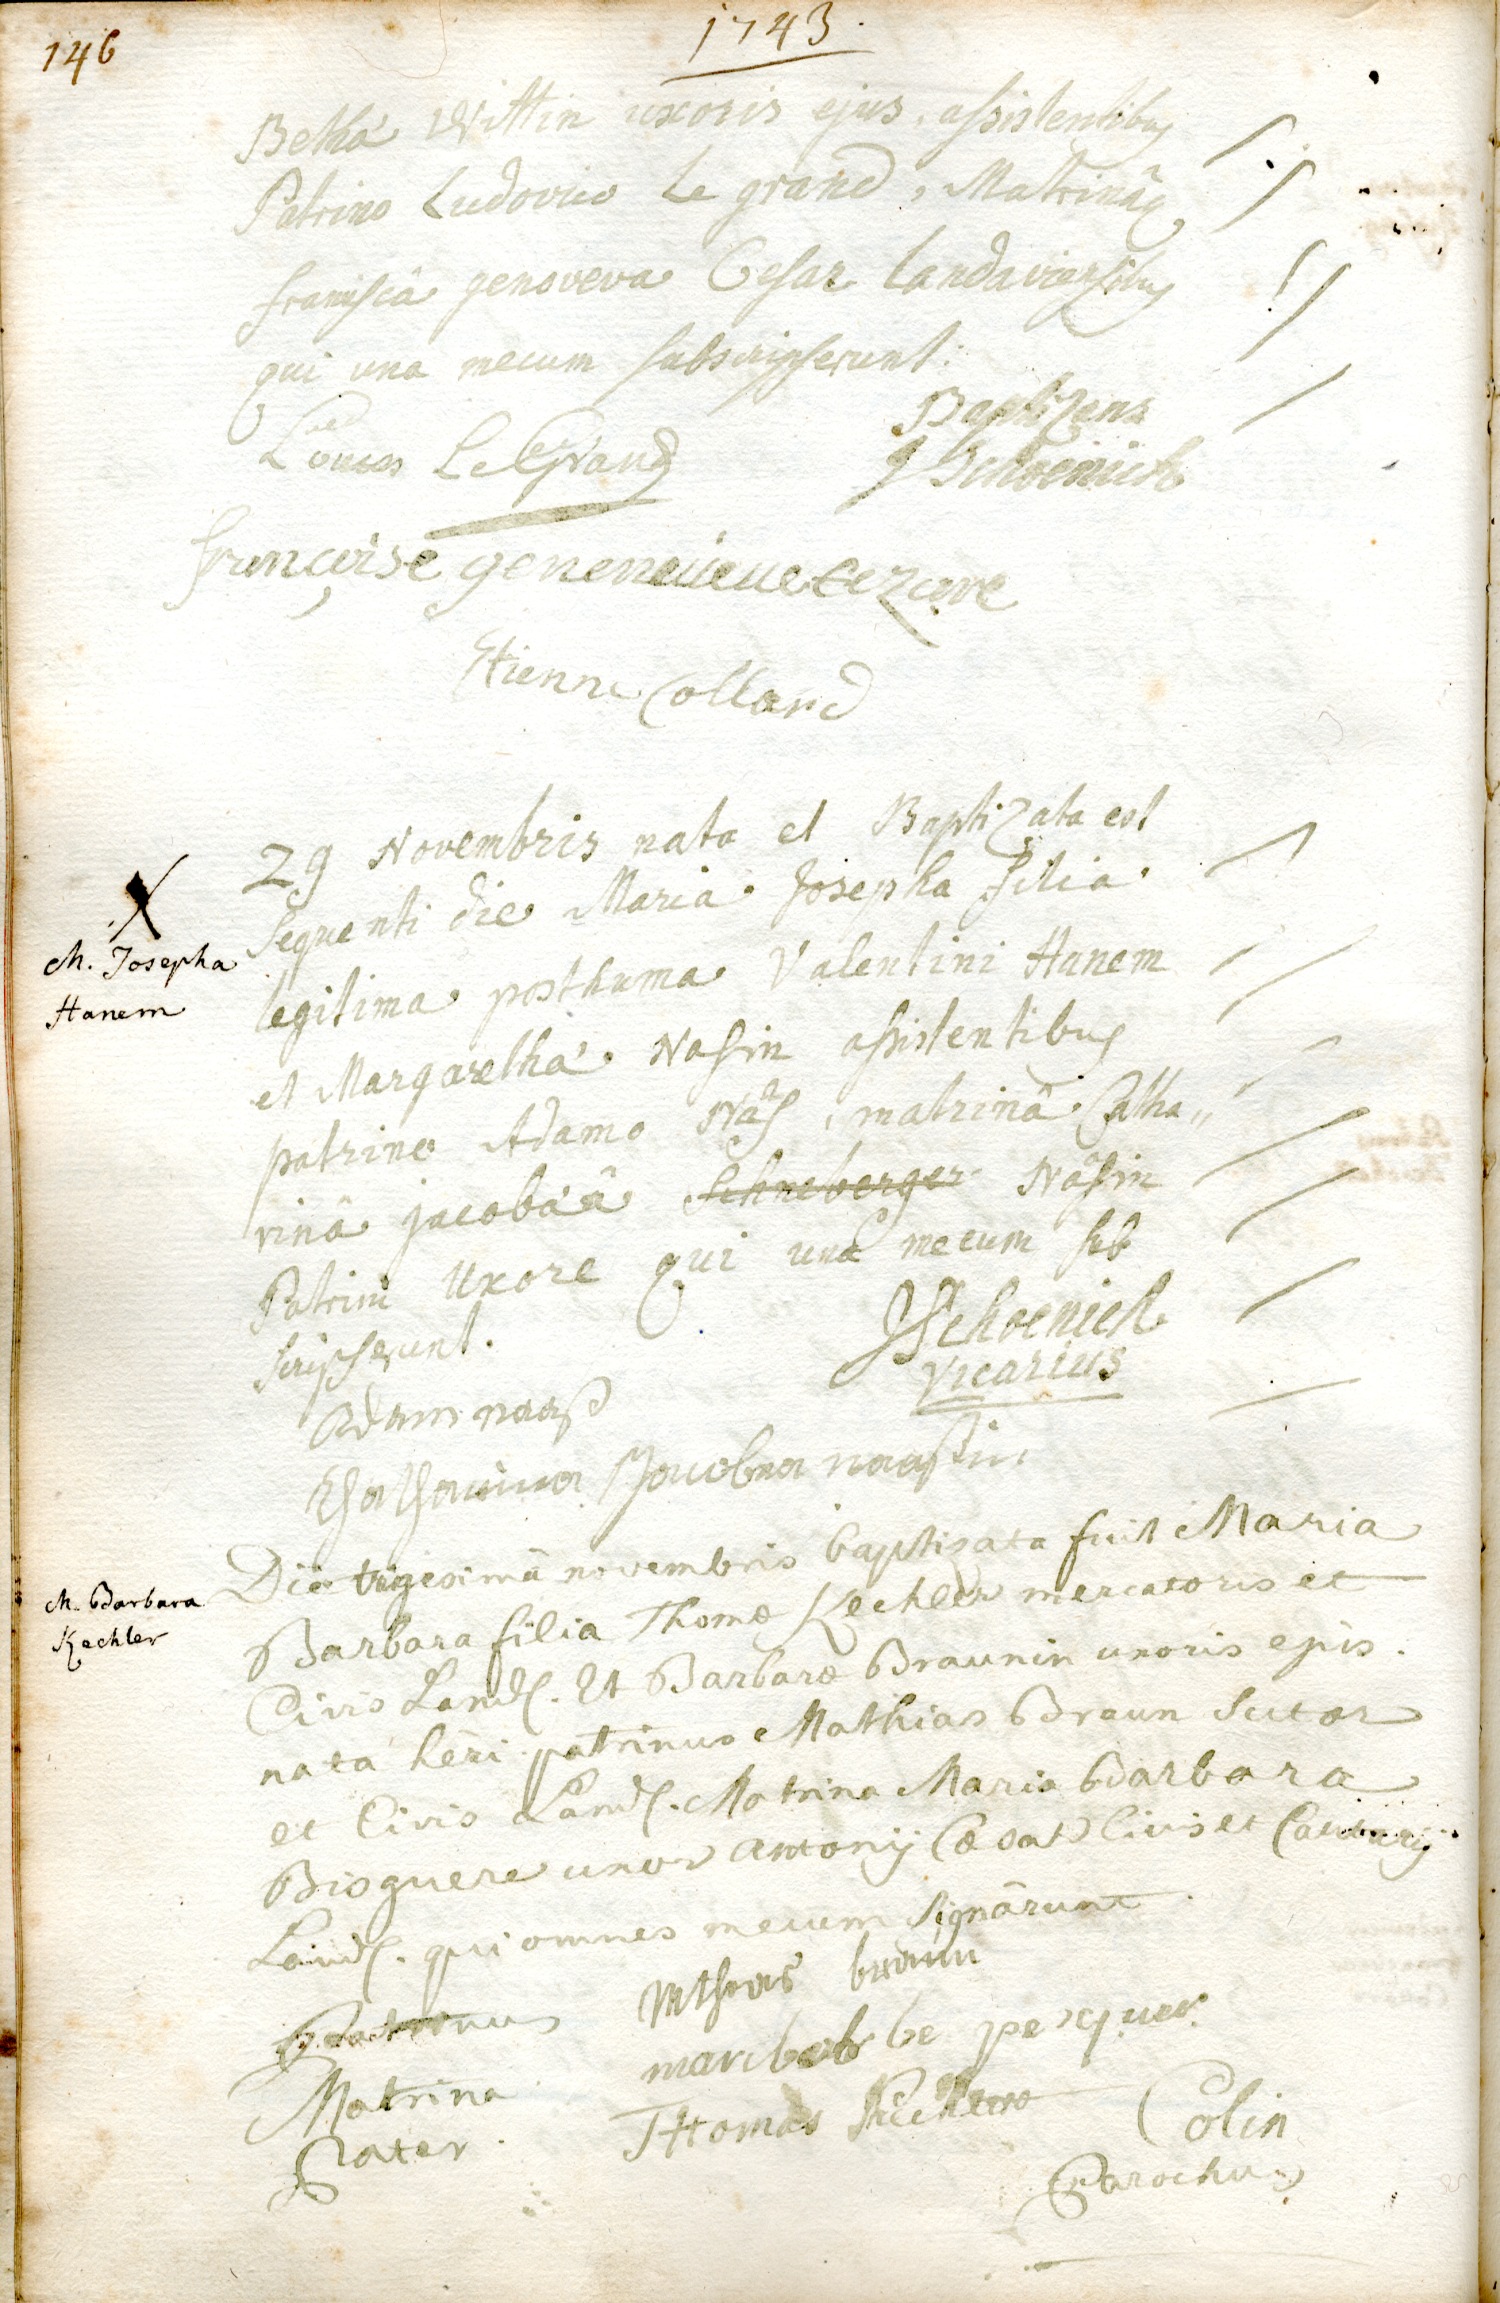 146
1743.
Betha Wittin uxoris ejus, assistentibus
Patrino Ludovico Le grand, Matrinâ
francisca genoveva Cesar Landaviensibus
qui una mecum subscripserunt:
Baptizens
Louies LeGrand
J Schoenich
françoise geneneuieue cezare
Etienne Colland
29 Novembris nata et Baptizata est
sequenti die Maria Josepha filia
M. Josepha
Hanem
legitima posthuma Valentini Hanem
et Margaretha Nassin assistentibus
patrino Adamo Näs, matrinâ Catha,,
rinâ jacobäâ Schneberger Nässin
Patrini Uxore qui una mecum sub
scripserunt.
JSchoenich
Vicarius
Adam naaß
Chatharina Jacobea naaßin
Die trigesimâ novembris baptisata fuit Maria
M. Barbara
Kechler
Barbara filia Thomæ Kechler mercatoris et
Civis Land. Et Barbaræ Braunin uxoris ejus.
nata heri patrinus Mathias Braun Sutor
et Civis Land. Matrina Maria Barbara
Bisguere uxor Antonij Cæsar Civis et
Land. qui omnes mecum signârunt
Patrinus
braun
Matrina
be pexquer
Pater
THomas Kechler
Colin
Parochus